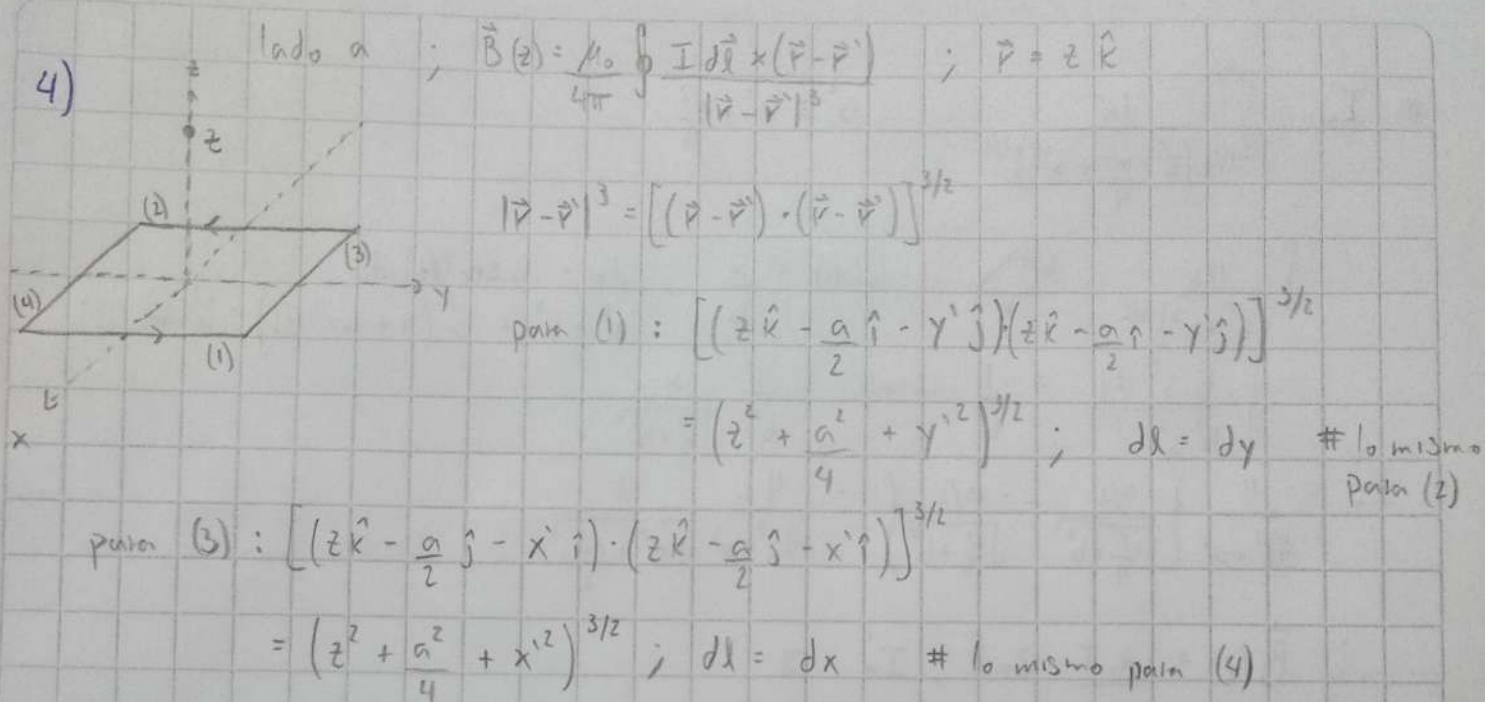 4) lado a ; B⃗(z) = μ₀/4π ∮ I dl⃗ × (r⃗ - r⃗`)/|r⃗ - r⃗`|³ ; r⃗ = z k̂
z
z
|r⃗ - r⃗`|³ = [(r⃗ - r⃗`) · (r⃗ - r⃗`)]^3/2
(2)
(3)
y
(4)
(1)
x
para (1) : [(z k̂ - a/2 î - y` ĵ)·(z k̂ - a/2 î - y` ĵ)]^3/2
= (z² + a²/4 + y`²)^3/2 ; dl = dy # lo mismo
para (2)
para (3) : [(z k̂ - a/2 ĵ - x` î) · (z k̂ - a/2 ĵ - x` î)]^3/2
= (z² + a²/4 + x`²)^3/2 ; dl = dx # lo mismo para (4)